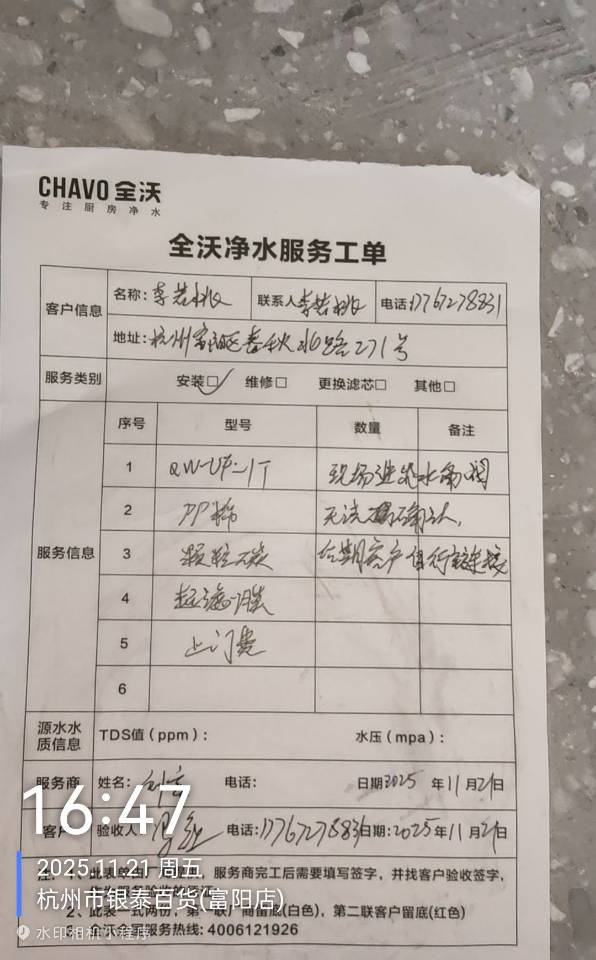 CHAVO 全沃
专注厨房净水
全沃净水服务工单
客户信息 名称: 李若桃 联系人 李若桃 电话: 17767278831
地址: 杭州富阳区春秋北路271号
服务类别 安装☑ 维修□ 更换滤芯□ 其他□
服务信息 序号 型号 数量 备注
1 QW-UF-1T 现场进出水角阀
2 PP棉 无法确认,
3 颗粒碳 后期客户自行连接
4 超滤膜
5 上门费
6
源水水质信息 TDS值(ppm): 水压(mpa):
服务商 姓名: 电话: 日期2025年11月21日
客户 验收人: 电话: 17767278831 日期: 2025年11月21日
16:47
2025.11.21 周五
杭州市银泰百货(富阳店)
水印相机小程序
服务商完工后需要填写签字，并找客户验收签字，
2、此表一式两份，第一联厂商留底(白色)，第二联客户留底(红色)
服务热线: 4006121926